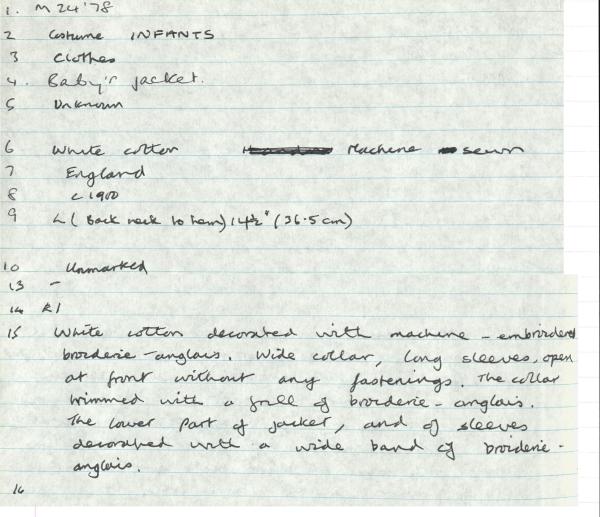 1. M 24'78
2 Costume INFANTS
3 Clothes
4. Baby's jacket.
5 Unknown
6 White cotton Machine sewn
7 England
8 c 1900
9 L (Back neck to hem) 14½" (36.5 cm)
10 Unmarked
13 -
14 R1
15 White cotton decorated with machine - embroidered
broiderie - anglais. Wide collar, long sleeves, open
at front without any fastenings. The collar
trimmed with a frill of broiderie - anglais.
The lower part of jacket, and of sleeves
decorated with a wide band of broiderie -
anglais.
16